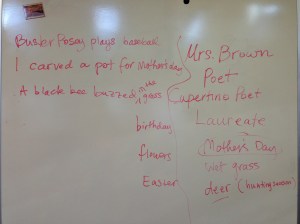 Buster Posey plays baseball
I carved a pot for Mother's day
A black bee buzzed, grass
birthday
flowers
Easier
Mrs. Brown
Poet
Cupertino Poet
Laureate
Mother's Day
Wet grass
deer (hunting season)